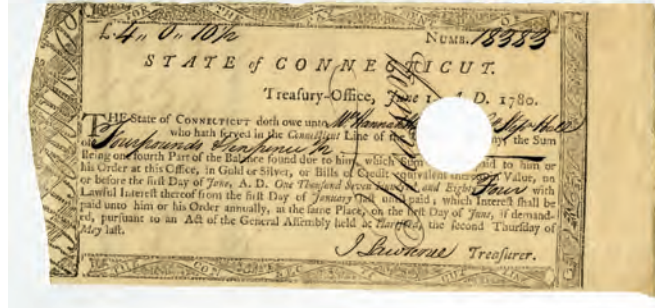 £. 4 ,, 0 ,, 10½ NUMB. 18383
STATE of CONNECTICUT.
Treasury-Office, June 1 A. D. 1780.
THE State of CONNECTICUT doth owe unto Mr Hannah
who hath served in the Connecticut Line of the Army, the Sum
of Four pounds & ten pence ½
Being one fourth Part of the Balance found due to him, which Sum paid to him or
his Order at this Office, in Gold or Silver, or Bills of Credit equivalent thereto in Value, on
or before the first Day of June, A. D. One Thousand Seven Hundred and Eighty Four with
Lawful Interest thereof from the first Day of January last until paid; which Interest shall be
paid unto him or his Order annually, at the same Place, on the first Day of June, if demand-
ed, pursuant to an Act of the General Assembly held at Hartford, the second Thursday of
May last.
J Lawrence Treasurer.